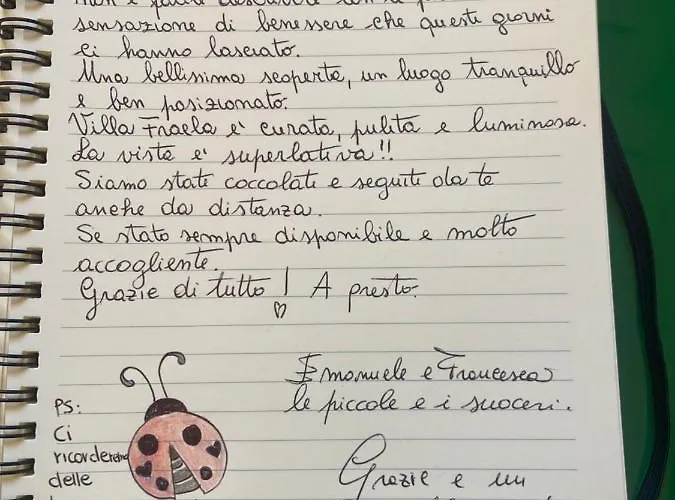 sensazione di benessere che questi giorni
ci hanno lasciato.
Una bellissima scoperta, un luogo tranquillo
e ben posizionato.
Villa Fraela e' curata, pulita e luminosa.
La vista e' superlativa!!
Siamo stati coccolati e seguiti da te
anche da distanza.
Se stato sempre disponibile e molto
accogliente.
Grazie di tutto! A presto.
Emanuele e Francesca
le piccole e i suoceri.
PS:
Ci
ricorderemo
delle
Grazie e un